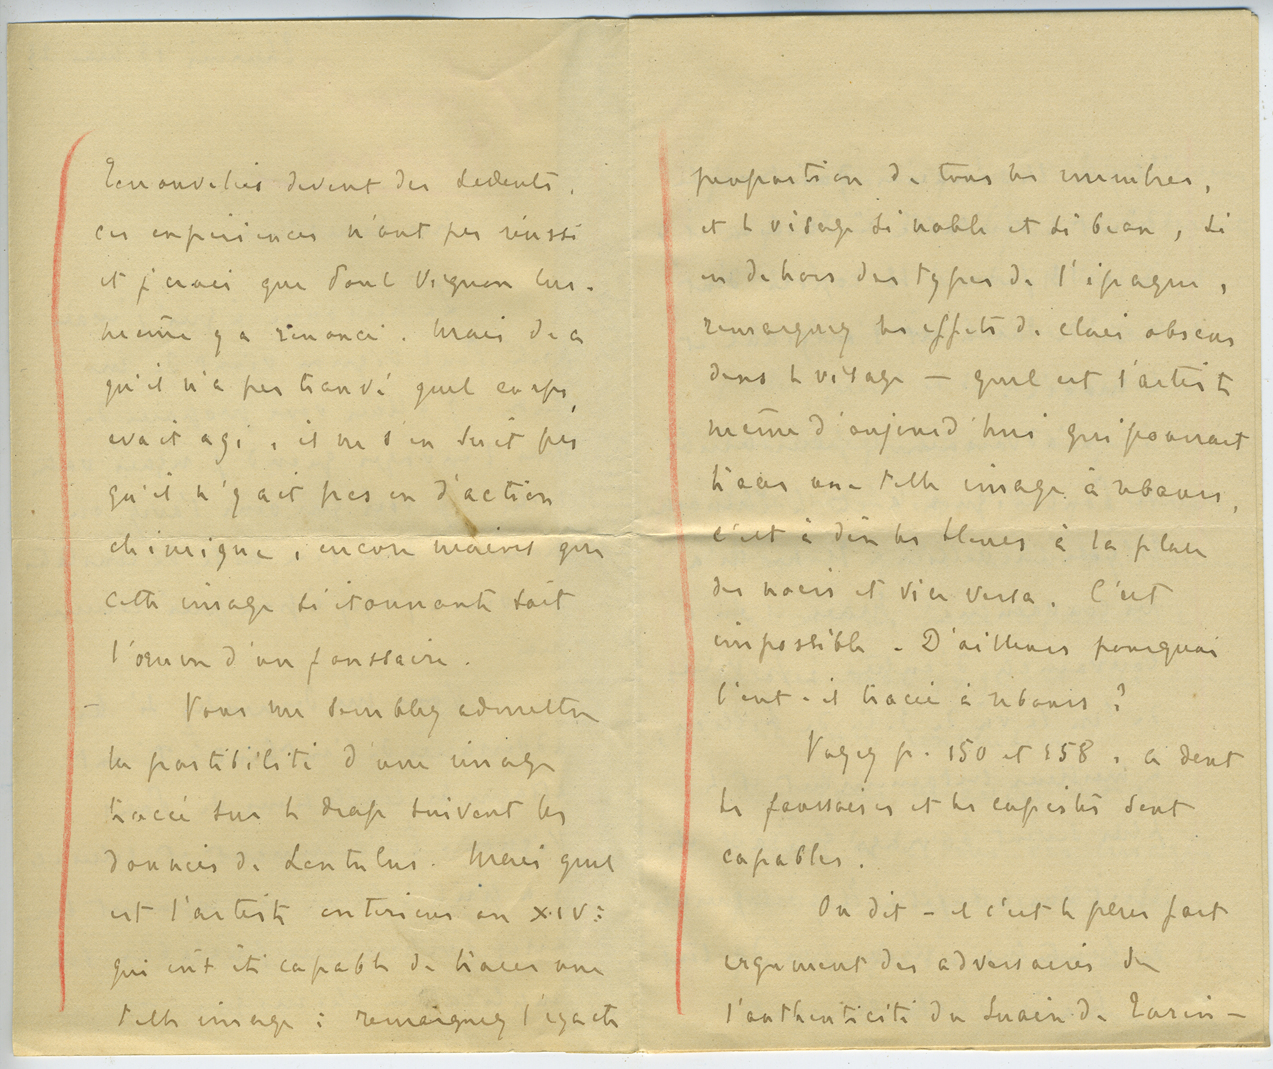 renouvelées devant des savants.
ces expériences n'ont pas réussi
et je crois que Paul Vignon lui-
même y a renoncé. Mais de ce
qu'il n'a pas trouvé quel corps
avait agi, il ne s'en suit pas
qu'il n'y ait pas eu d'action
chimique, encore moins que
cette image si étonnante soit
l'œuvre d'un faussaire.
– Vous me semblez admettre
la possibilité d'une image
tracée sur le drap suivant les
données de Lentulus. Mais quel
est l'artiste antérieur au XIVe
qui eût été capable de tracer une
telle image ; remarquez l'exacte
proportion de tous les membres,
et le visage si noble et si beau, si
en dehors des types de l'époque,
remarquez les effets de clair obscur
dans le visage — quel est l'artiste
même d'aujourd'hui qui pourrait
tracer une telle image à rebours,
c'est à dire les blancs à la place
des noirs et vice versa. C'est
impossible. D'ailleurs pourquoi
l'eut-il tracée à rebours ?
Voyez p. 150 et 158, ce dont
les faussaires et les copistes sont
capables.
On dit – et c'est le plus fort
argument des adversaires de
l'authenticité du Suaire de Turin –